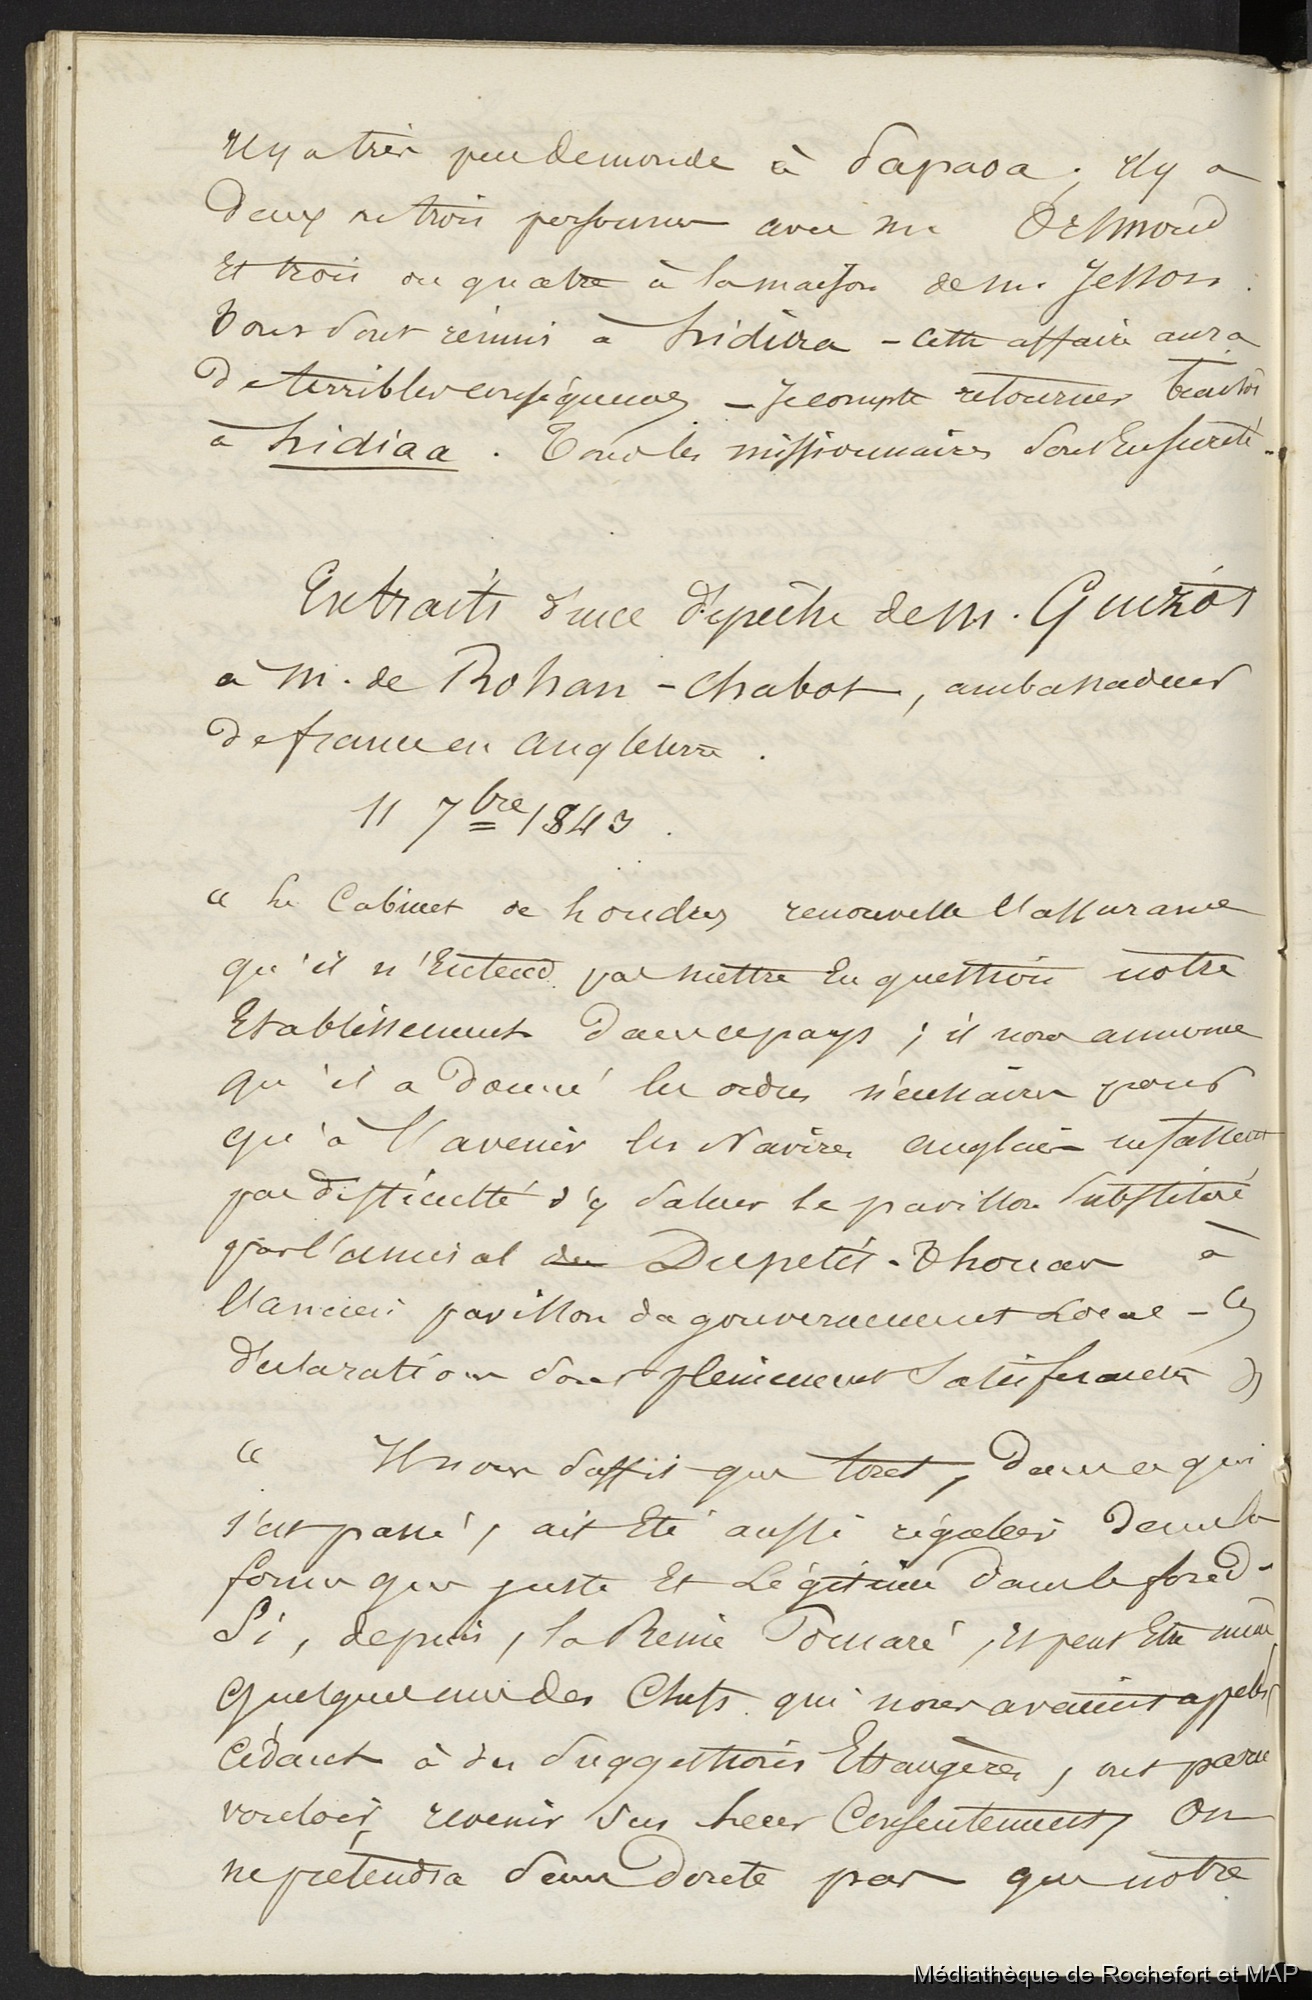 Il y a très peu de monde à Papaoa ; Il y a
deux ou trois personnes avec Mr Orsmond
Et trois ou quatre à la maison de M. Jesson.
Tous sont réunis à - cette affaire aura
de terribles conséquences - Je compte retourner bientôt
à . Tous les missionnaires sont En sureté.
Extraits d'une dépêche de M. Guizot
à M. de Rohan-Chabot, ambassadeur
de france en angleterre.
11 7bre 1843.
" Le Cabinet de Londres renouvelle l'assurance
qu'il n'Entend pas mettre En question notre
Etablissement dans ce pays ; il nous annonce
qu'il a donné les ordres nécessaires pour
qu'à l'avenir les Navires anglais ne fassent
pas difficulté d'y saluer le pavillon substitué
par l'amiral du Dupetit-Thouars à
l'ancien pavillon du gouvernement Local - Ces
déclarations sont pleinement satisfaisantes "
" Il nous suffit que tout, dans ce qui
s'est passé, ait Eté aussi régulier dans la
forme que juste Et Légitime dans le fond -
Si, depuis, la Reine Pomaré, Et peut Etre même
quelques uns des Chefs qui nous avaient appelés
Cédant à des suggestions Etrangères, ont paru
vouloir revenir sur leur Consentement, On
ne prétendra sans doute pas que notre
Médiathèque de Rochefort et MAP